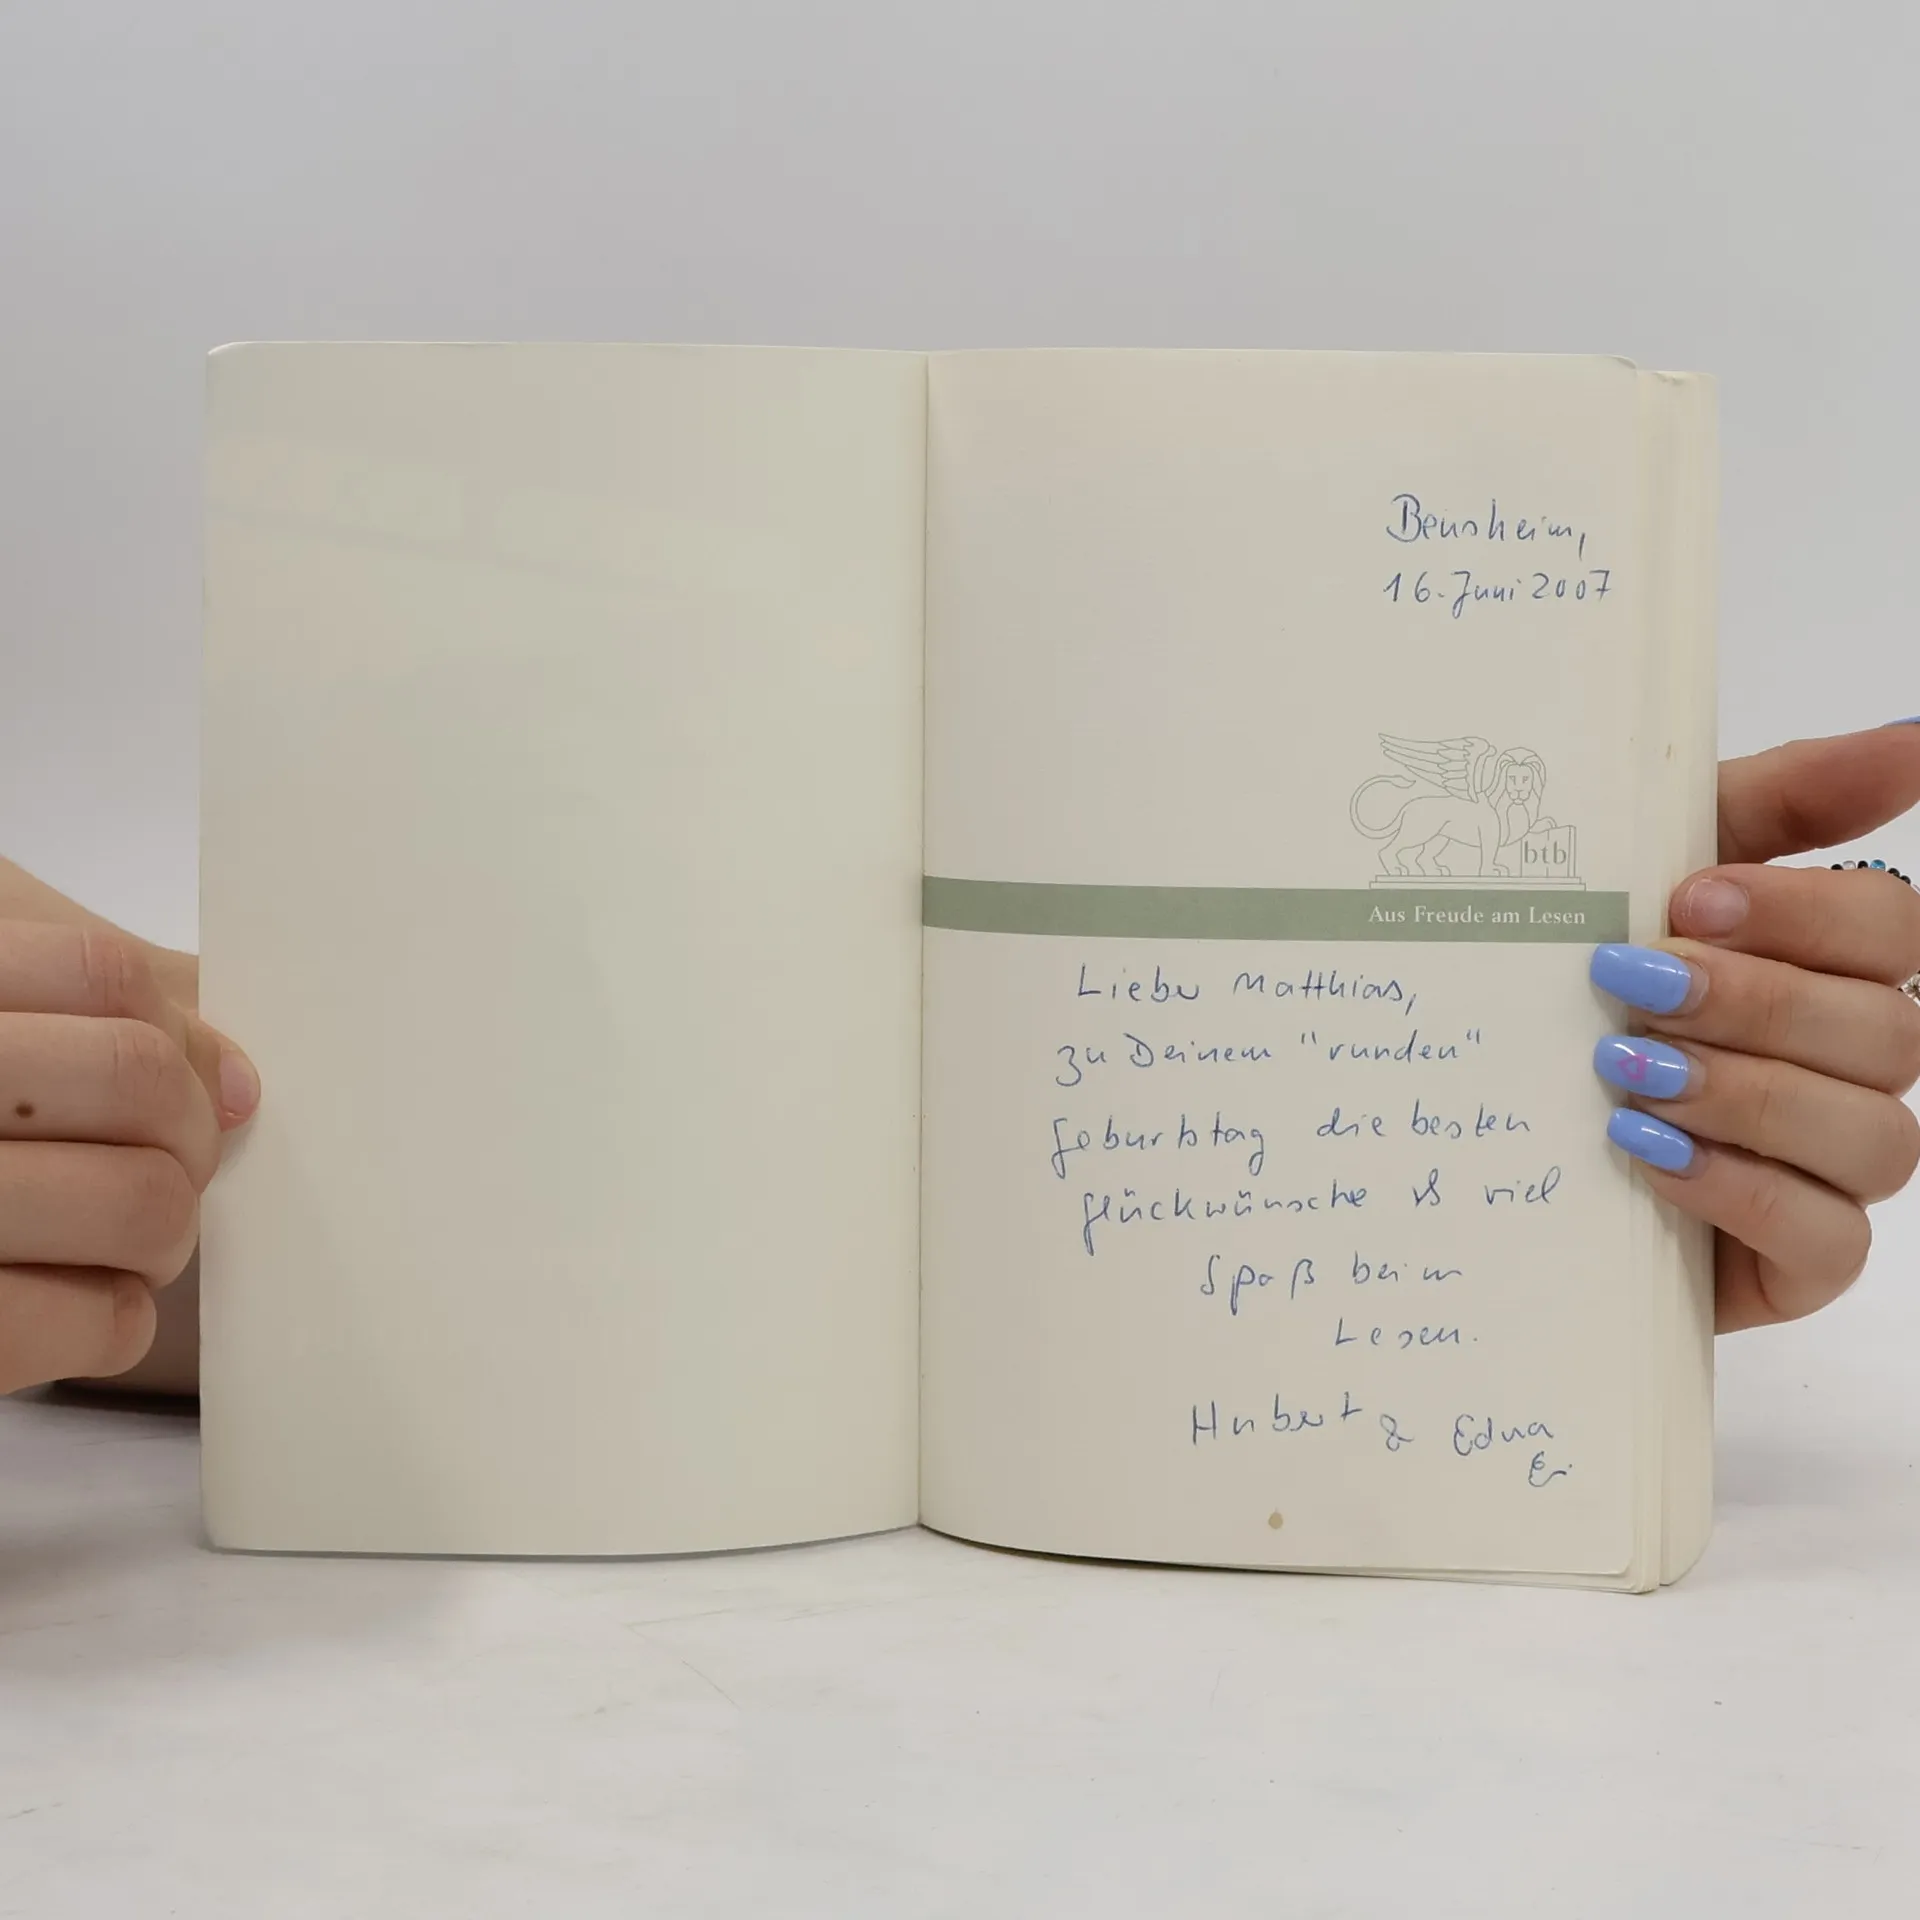 Bensheim,
16. Juni 2007
btb
Aus Freude am Lesen
Lieber Matthias,
zu Deinem "runden"
Geburtstag die besten
Glückwünsche & viel
Spaß beim
Lesen.
Hubert & Edna